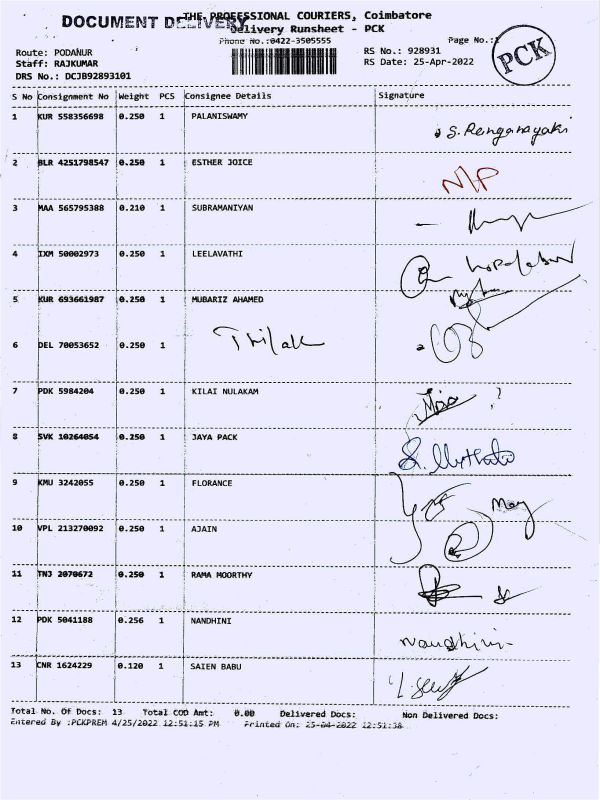 DOCUMENT DELIVERY
THE PROFESSIONAL COURIERS, Coimbatore
Delivery Runsheet - PCK
Phone No.:0422-3505555
Page No.:1
PCK
Route: PODANUR
RS No.: 928931
Staff: RAJKUMAR
RS Date: 25-Apr-2022
DRS No.: DCJB92893101
S No Consignment No Weight PCS Consignee Details Signature
1 KUR 558356698 0.250 1 PALANISWAMY S. Renganayaki
2 BLR 4251798547 0.250 1 ESTHER JOICE N/P
3 MAA 565795388 0.210 1 SUBRAMANIYAN
4 IXM 50002973 0.250 1 LEELAVATHI
5 KUR 693661987 0.250 1 MUBARIZ AHAMED
6 DEL 70053652 0.250 1 Thilak
7 PDK 5984204 0.250 1 KILAI NULAKAM
8 SVK 10264054 0.250 1 JAYA PACK
9 KMU 3242055 0.250 1 FLORANCE
10 VPL 213270092 0.250 1 AJAIN
11 TNJ 2070672 0.250 1 RAMA MOORTHY
12 PDK 5041188 0.256 1 NANDHINI Nandhini
13 CNR 1624229 0.120 1 SAIEN BABU
Total No. Of Docs: 13 Total COD Amt: 0.00 Delivered Docs: Non Delivered Docs:
Entered By :PCKPREM 4/25/2022 12:51:15 PM Printed On: 25-04-2022 12:51:38